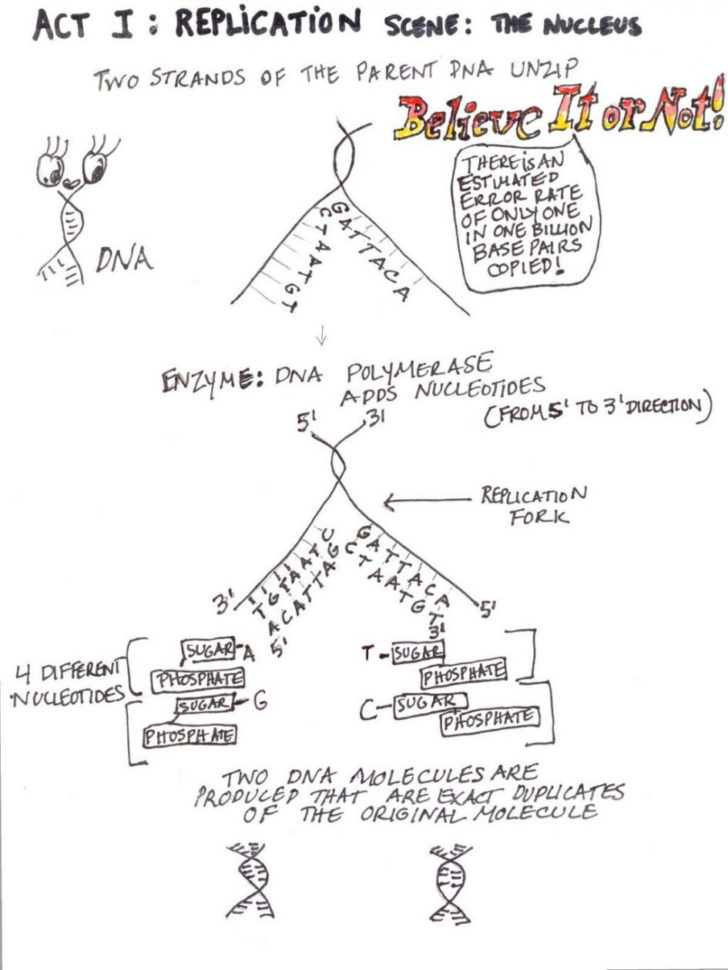 ACT I: REPLICATION SCENE: THE NUCLEUS
TWO STRANDS OF THE PARENT DNA UNZIP
Believe It or Not!
THERE IS AN
ESTIMATED
ERROR RATE
OF ONLY ONE
IN ONE BILLION
BASE PAIRS
COPIED!
DNA
GATTACA
CTAATGT
ENZYME: DNA POLYMERASE
ADDS NUCLEOTIDES
(FROM 5' TO 3' DIRECTION)
5' 3'
REPLICATION
FORK
TGTAATC
ACATTAG
GATTACA
CTAATGT
3' 5'
5' 3'
4 DIFFERENT
NUCLEOTIDES
SUGAR-A
PHOSPHATE
SUGAR-G
PHOSPHATE
T-SUGAR
PHOSPHATE
C-SUGAR
PHOSPHATE
TWO DNA MOLECULES ARE
PRODUCED THAT ARE EXACT DUPLICATES
OF THE ORIGINAL MOLECULE